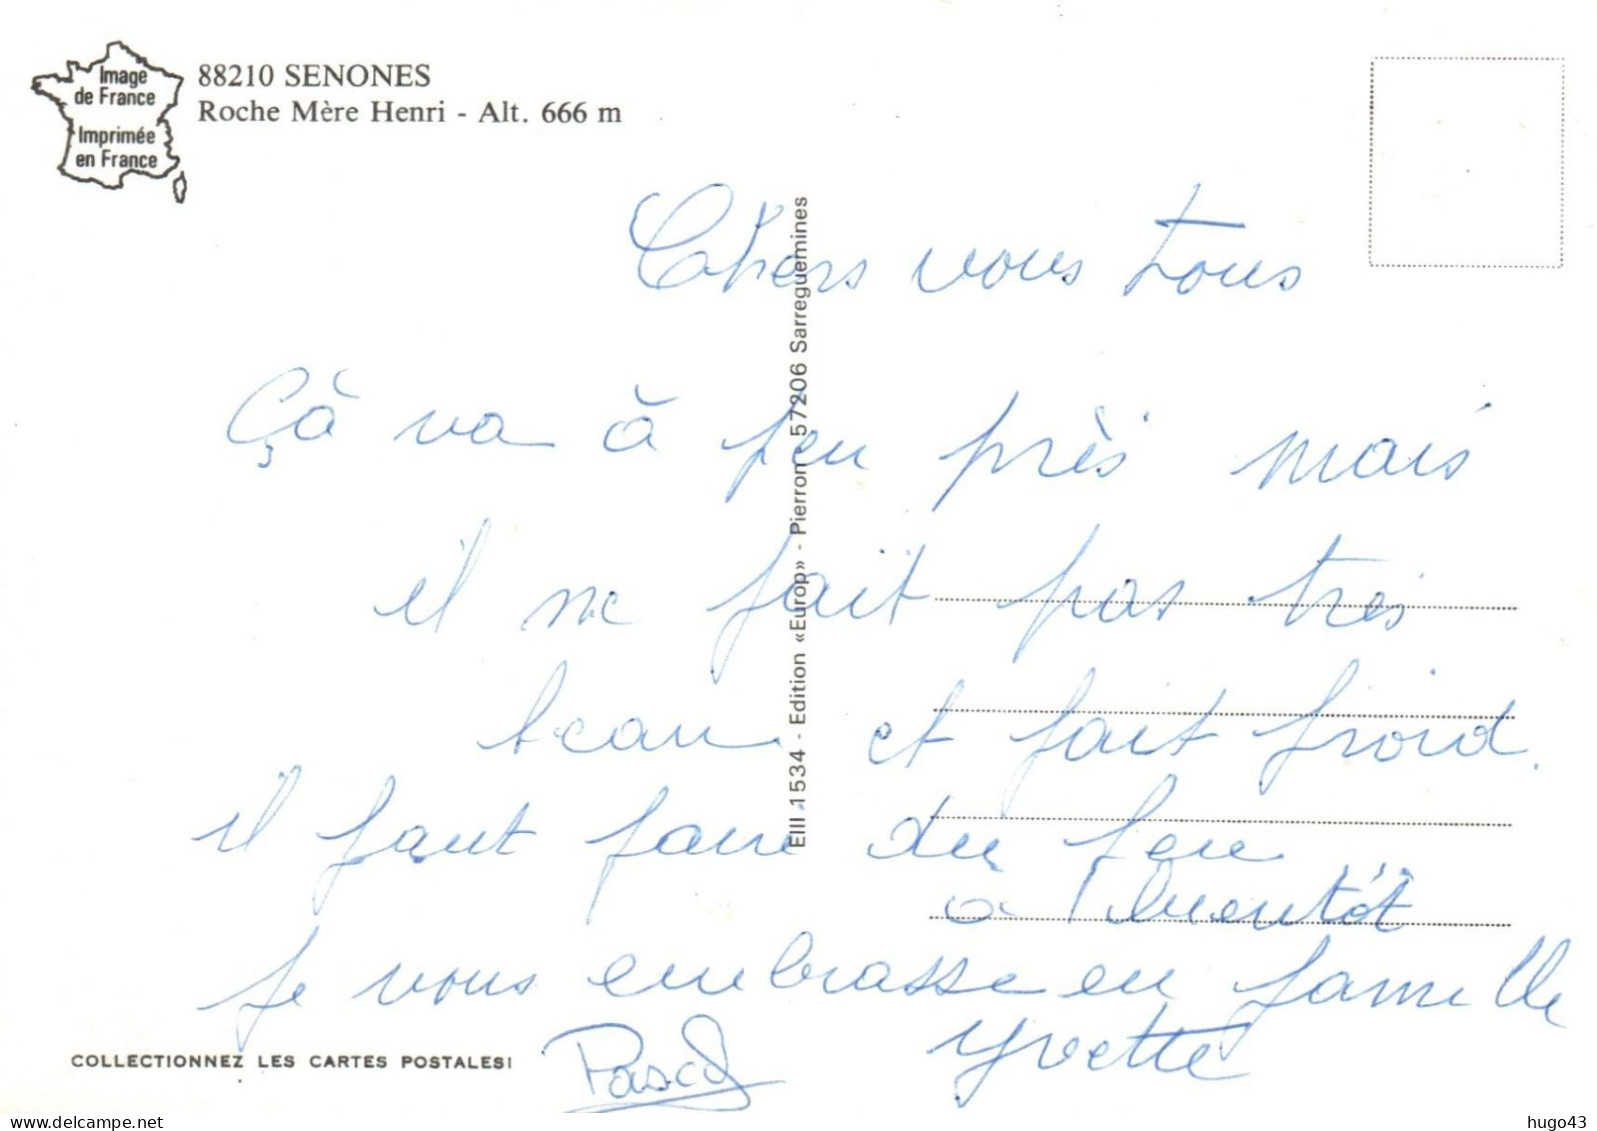 Image
de France
Imprimée
en France
88210 SENONES
Roche Mère Henri - Alt. 666 m
Chers vous tous
Çà va à peu près mais
il ne fait pas très
beau et fait froid.
il faut faire du feu
à bientôt
Je vous embrasse en famille
Yvette
Pascal
EIII 1534 - Edition «Europ» - Pierron 57206 Sarreguemines
COLLECTIONNEZ LES CARTES POSTALES!
hugo43